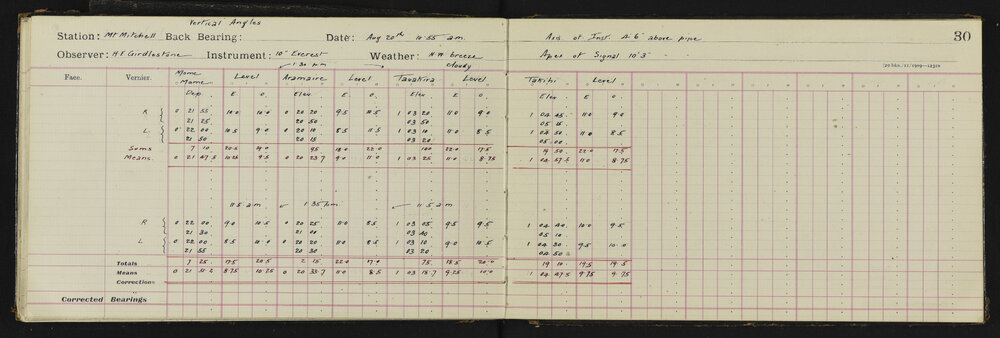 Vertical Angles
Station: Mt Mitchell Back Bearing: Date: Aug 20th 10·55 a.m. Axis of Inst. 4·6" above pipe 30
Observer: H F Girdlestone Instrument: 10" Everest Weather: N.W. breeze cloudy Apex of Signal 10'3"
[70 bks./11/1909—12310
1·30 pm
Face. Vernier. Mome Mome Level Aramaire Level Tawakira Level Takihi Level
Dep. E O. Elev E O. Elev. E O. Elev. E O.
R 0 21 55 10·0 10·0 0 20 20 9·5 10·5 1 03 20 11·0 9·0 1 04 45 11·0 9·0
21 25 20 50 03 50 05 15
L 0 22 00 10·5 9·0 0 20 10 8·5 11·5 1 03 10 11·0 8·5 1 04 50 11·0 8·5
21 50 20 15 03 20 05 00
Sums 7 10 20·5 19·0 95 18·0 22·0 100 22·0 17·5 19 50 22·0 17·5
Means 0 21 47·5 10·25 9·5 0 20 23·7 9·0 11·0 1 03 25 11·0 8·75 1 04 57·5 11·0 8·75
11·5 am 1·35 pm 11·5 am
R 0 22 00 9·0 10·5 0 20 25 11·0 8·5 1 03 05 9·5 9·5 1 04 40 10·0 9·5
21 30 21 00 03 40 05 10
L 0 22 00 8·5 10·0 0 20 20 11·0 8·5 1 03 10 9·0 10·5 1 04 30 9·5 10·0
21 55 20 30 03 20 04 50
Totals 7 25 17·5 20·5 2 15 22·0 17·0 75 18·5 20·0 19 10 19·5 19·5
Means 0 21 51·2 8·75 10·25 0 20 33·7 11·0 8·5 1 03 18·7 9·25 10·0 1 04 47·5 9·75 9·75
Corrections
Corrected Bearings